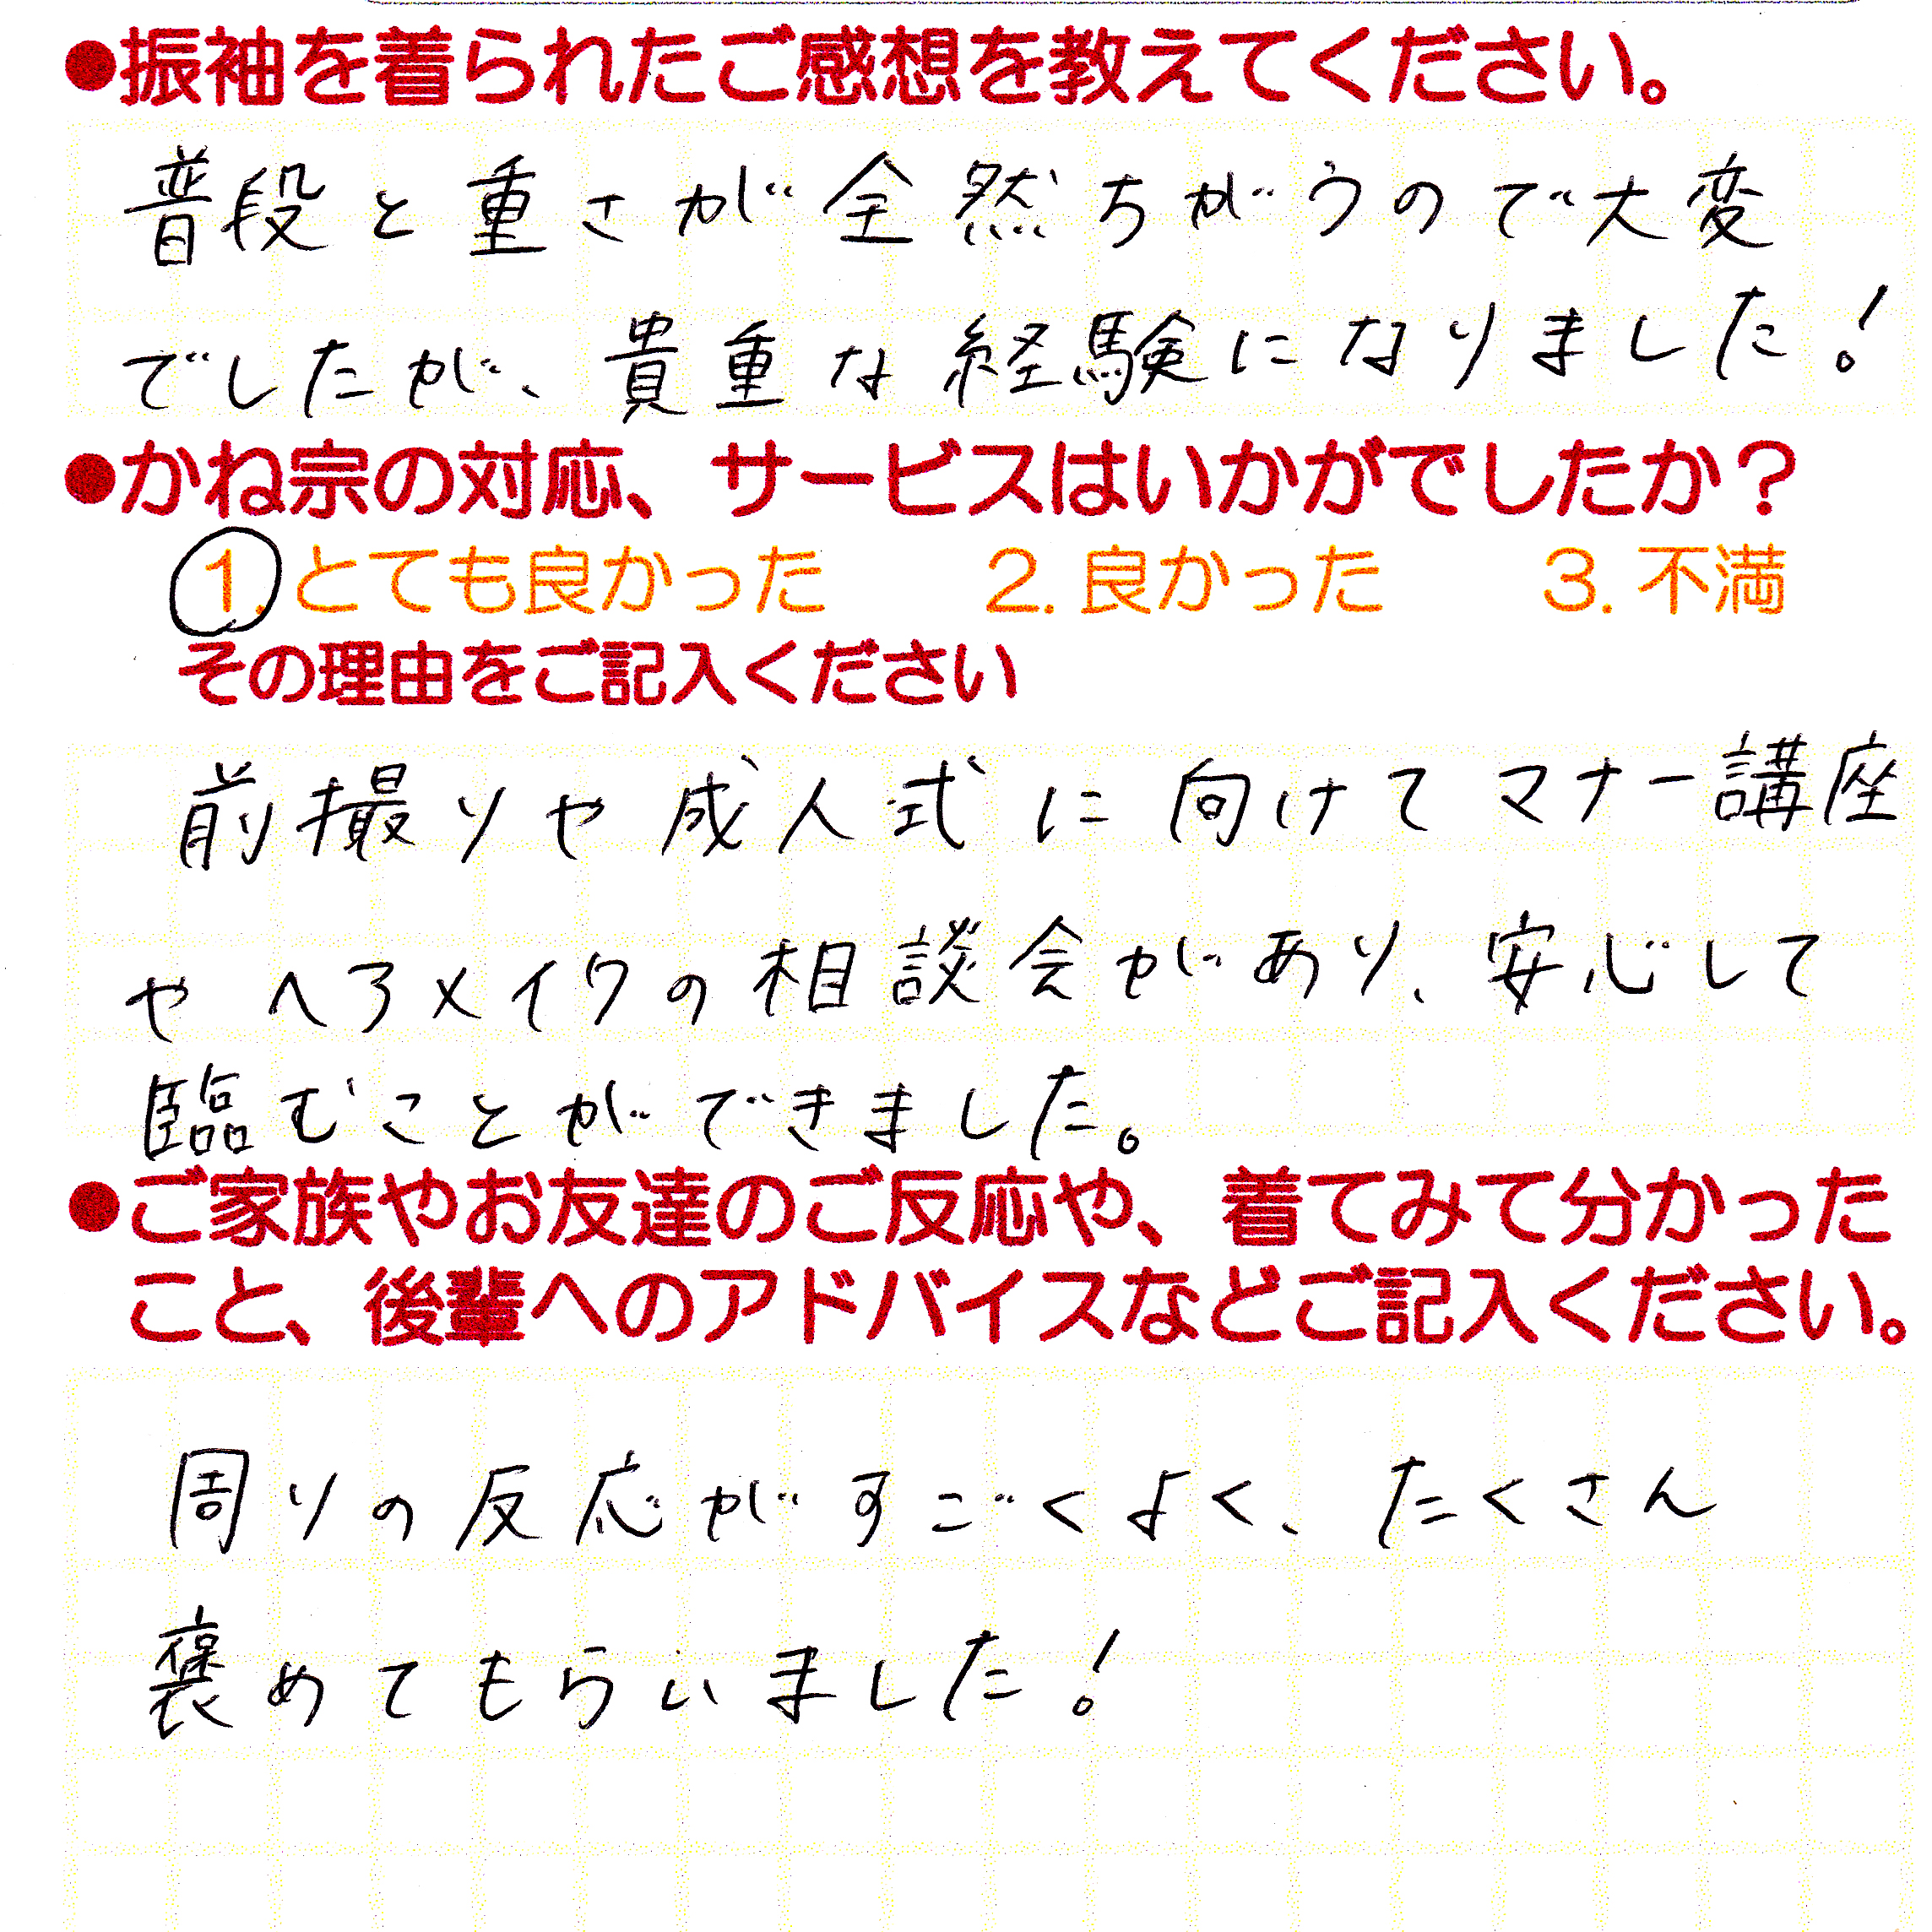 ●振袖を着られたご感想を教えてください。
普段と重さが全然ちがうので大変
でしたが、貴重な経験になりました!
●かね宗の対応、サービスはいかがでしたか?
1. とても良かった 2. 良かった 3. 不満
その理由をご記入ください
前撮りや成人式に向けてマナー講座
やヘアメイクの相談会があり、安心して
臨むことができました。
●ご家族やお友達のご反応や、着てみて分かった
こと、後輩へのアドバイスなどご記入ください。
周りの反応がすごくよく、たくさん
褒めてもらいました!